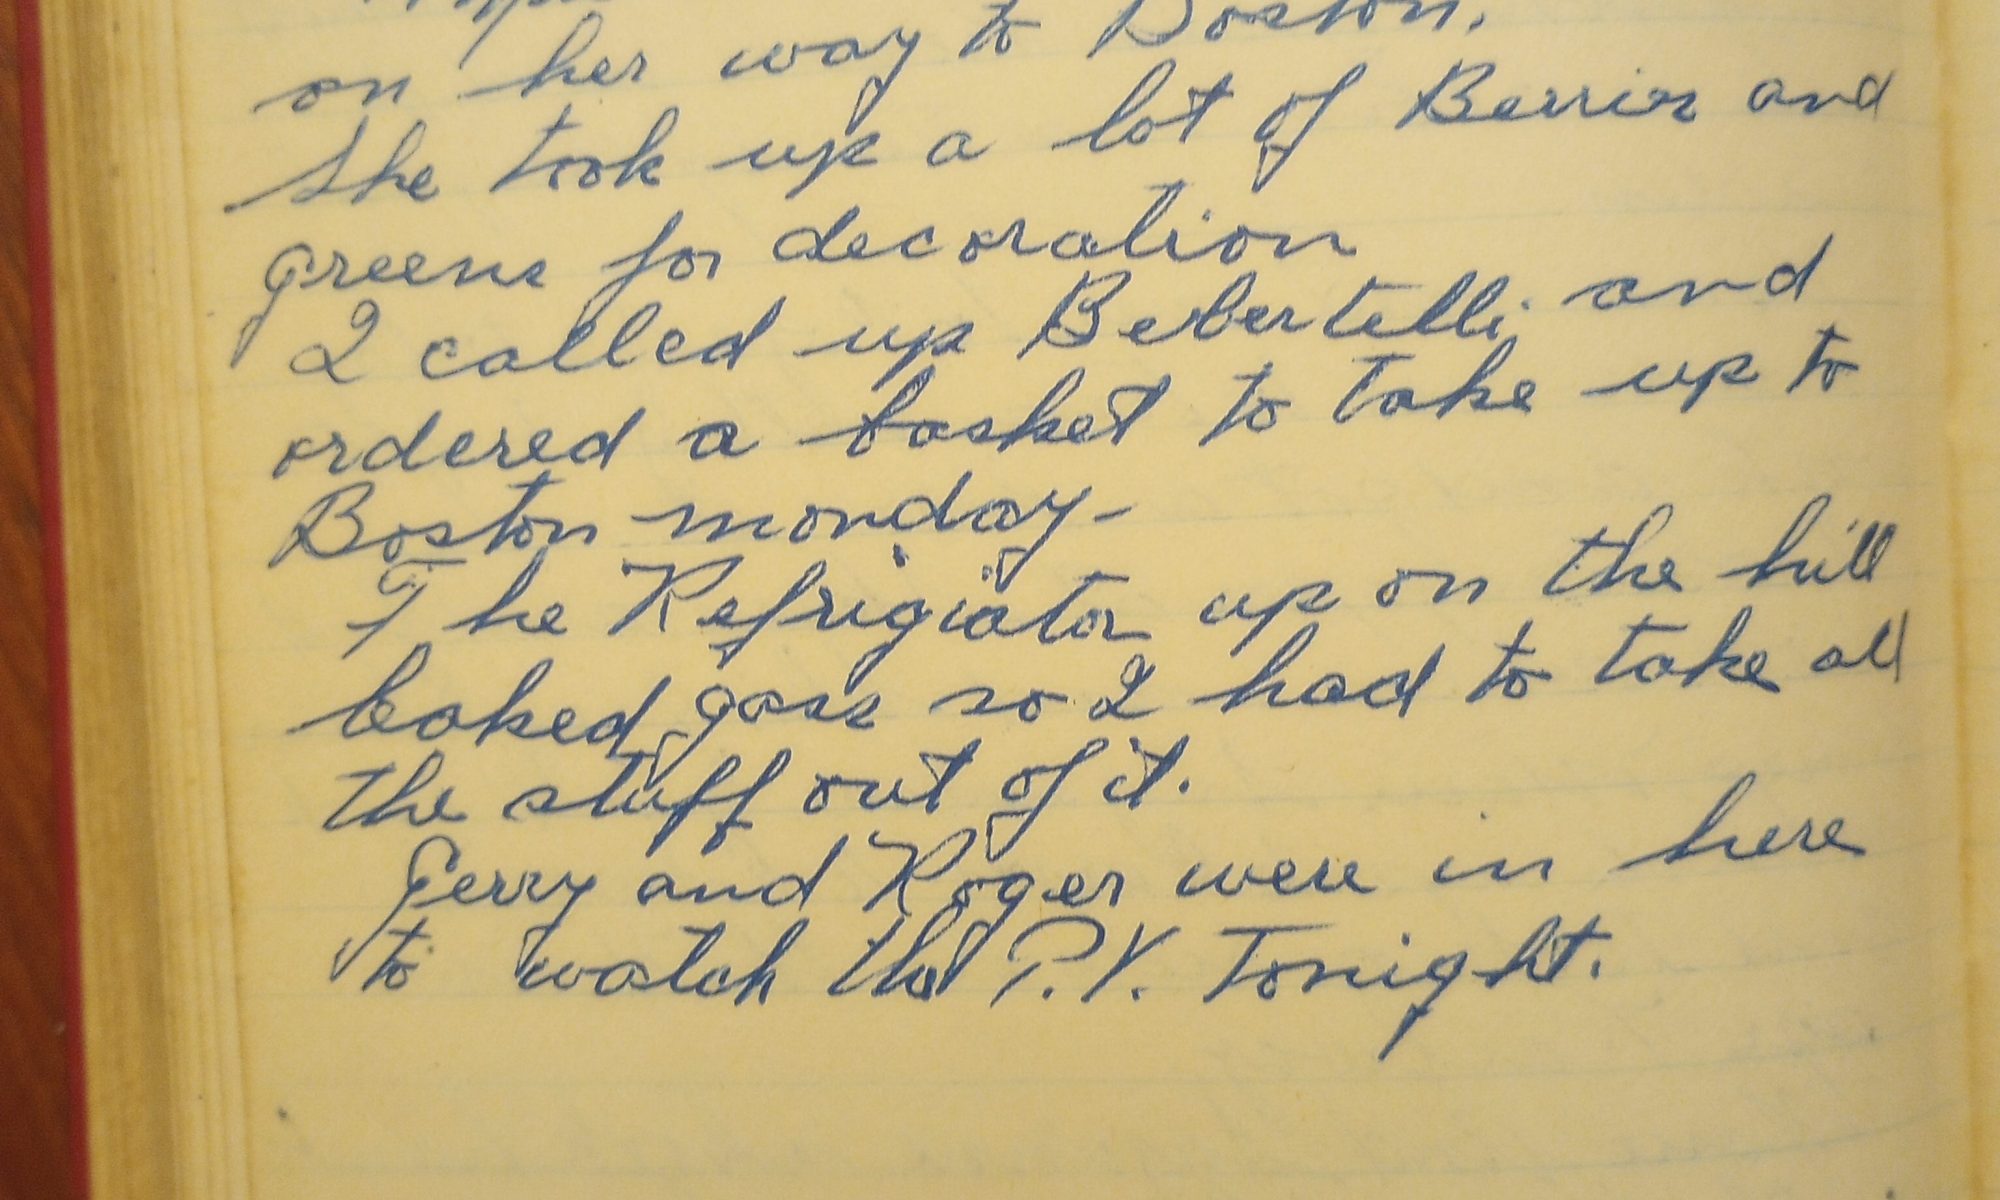 on her way to Boston.
She took up a lot of Berries and
greens for decoration
I called up Bebertelli and
ordered a basket to take up to
Boston monday-
The Refrigiator up on the hill
leaked gass so I had to take all
the stuff out of it.
Gerry and Roger were in here
to watch the T.V. Tonight.